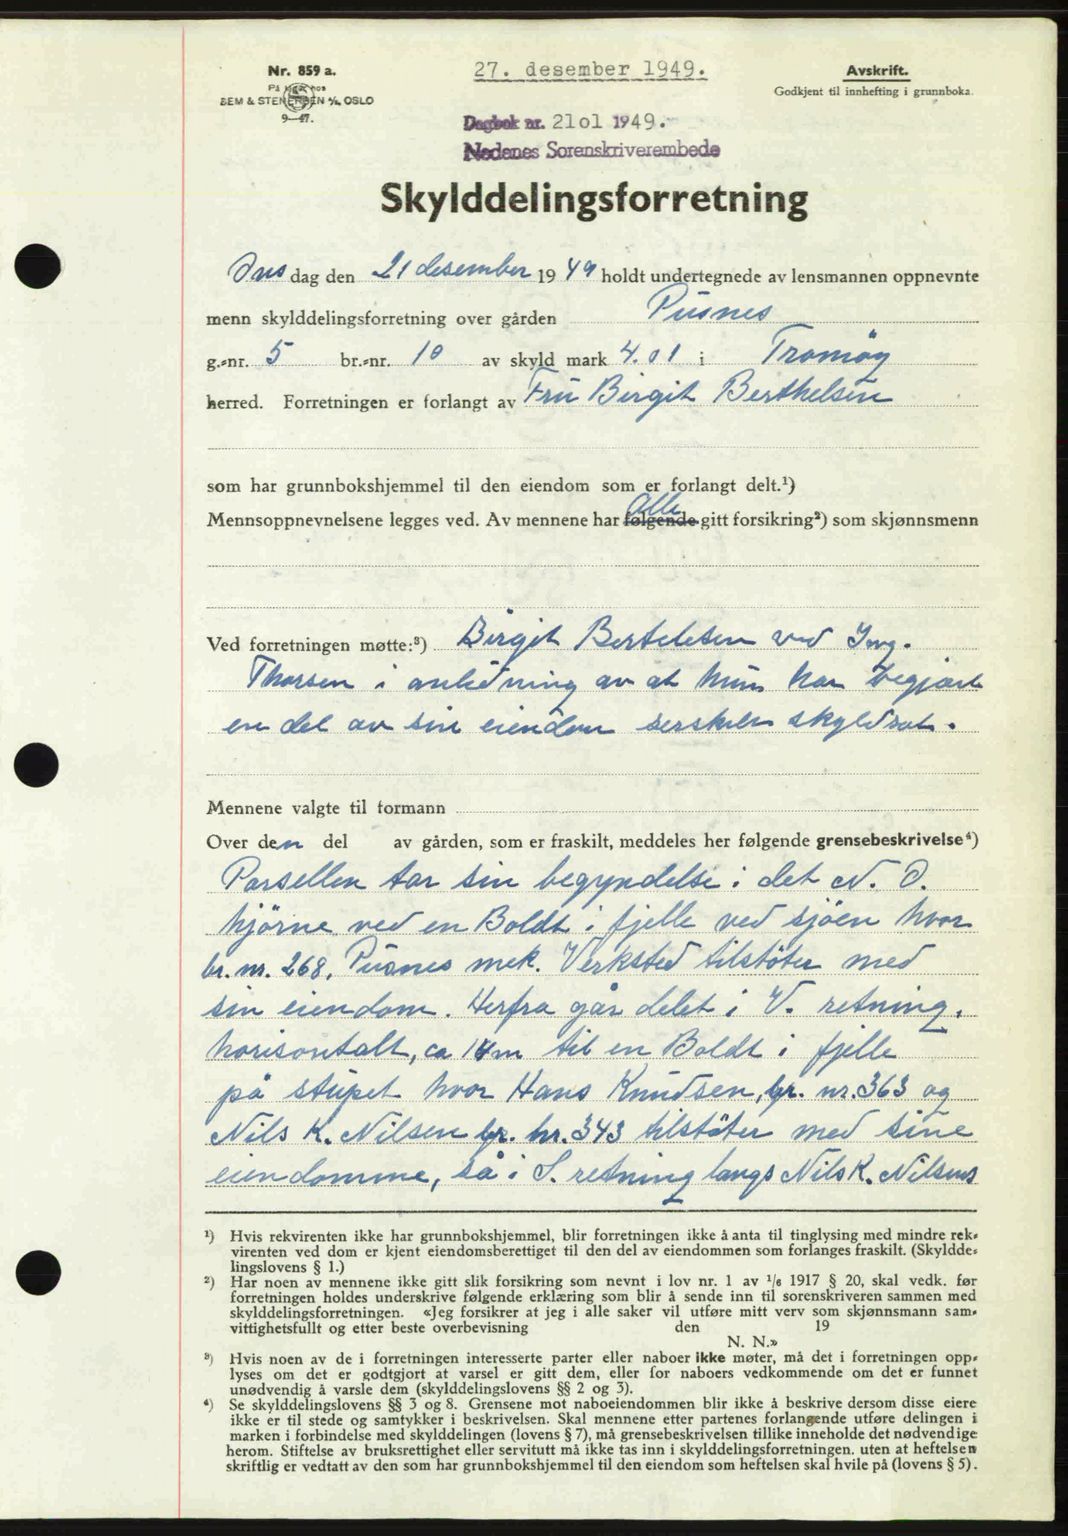 Nr. 859 a.
På lager hos
SEM & STENERSEN A/S, OSLO
9—47.
27. desember 1949.
Avskrift.
Godkjent til innhefting i grunnboka.
Dagbok nr. 2101 1949.
Nedenes Sorenskriverembede
Skylddelingsforretning
Ons dag den 21 desember 1949 holdt undertegnede av lensmannen oppnevnte
menn skylddelingsforretning over gården Pusnes
g.-nr. 5 br.-nr. 10 av skyld mark 4.01 i Tromöy
herred. Forretningen er forlangt av Fru Birgit Berthelsen
som har grunnbokshjemmel til den eiendom som er forlangt delt.¹)
Mennsoppnevnelsene legges ved. Av mennene har følgende alle gitt forsikring²) som skjønnsmenn
Ved forretningen møtte:³) Birgit Bertelsen ved Ing.
Thorsen i anledning av at hun har begjært
en del av sin eiendom serskilt skyldsat.
Mennene valgte til formann
Over den del av gården, som er fraskilt, meddeles her følgende grensebeskrivelse⁴)
Parsellen tar sin begyndelse i det N. O.
hjörne ved en Boldt i fjelle ved sjöen hvor
br. nr. 268, Pusnes mek. Verksted tilstöter med
sin eiendom. Herfra går delet i V. retning,
horisontalt, ca 14 m til en Boldt i fjelle
på stupet hvor Hans Knudsen, br. nr. 363 og
Nils K. Nilsen br. nr. 343 tilstöter med sine
eiendomme, så i S. retning langs Nils K. Nilsens
¹) Hvis rekvirenten ikke har grunnbokshjemmel, blir forretningen ikke å anta til tinglysing med mindre rek-
virenten ved dom er kjent eiendomsberettiget til den del av eiendommen som forlanges fraskilt. (Skyldde-
lingslovens § 1.)
²) Har noen av mennene ikke gitt slik forsikring som nevnt i lov nr. 1 av 1/6 1917 § 20, skal vedk. før
forretningen holdes underskrive følgende erklæring som blir å sende inn til sorenskriveren sammen med
skylddelingsforretningen. «Jeg forsikrer at jeg i alle saker vil utføre mitt verv som skjønnsmann sam-
vittighetsfullt og etter beste overbevisning den 19
N. N.»
³) Hvis noen av de i forretningen interesserte parter eller naboer ikke møter, må det i forretningen opp-
lyses om det er godtgjort at varsel er gitt dem, eller for naboers vedkommende om det er funnet
unødvendig å varsle dem (skylddelingslovens §§ 2 og 3).
⁴) Se skylddelingslovens §§ 3 og 8. Grensene mot naboeiendommen blir ikke å beskrive dersom disse eiere
ikke er til stede og samtykker i beskrivelsen. Skal mennene etter partenes forlangende utføre delingen i
marken i forbindelse med skylddelingen (lovens § 7), må grensebeskrivelsen tillike inneholde det nødvendige
herom. Stiftelse av bruksrettighet eller servitutt må ikke tas inn i skylddelingsforretningen. uten at heftelsen
skriftlig er vedtatt av den som har grunnbokshjemmel til den eiendom som heftelsen skal hvile på (lovens § 5).